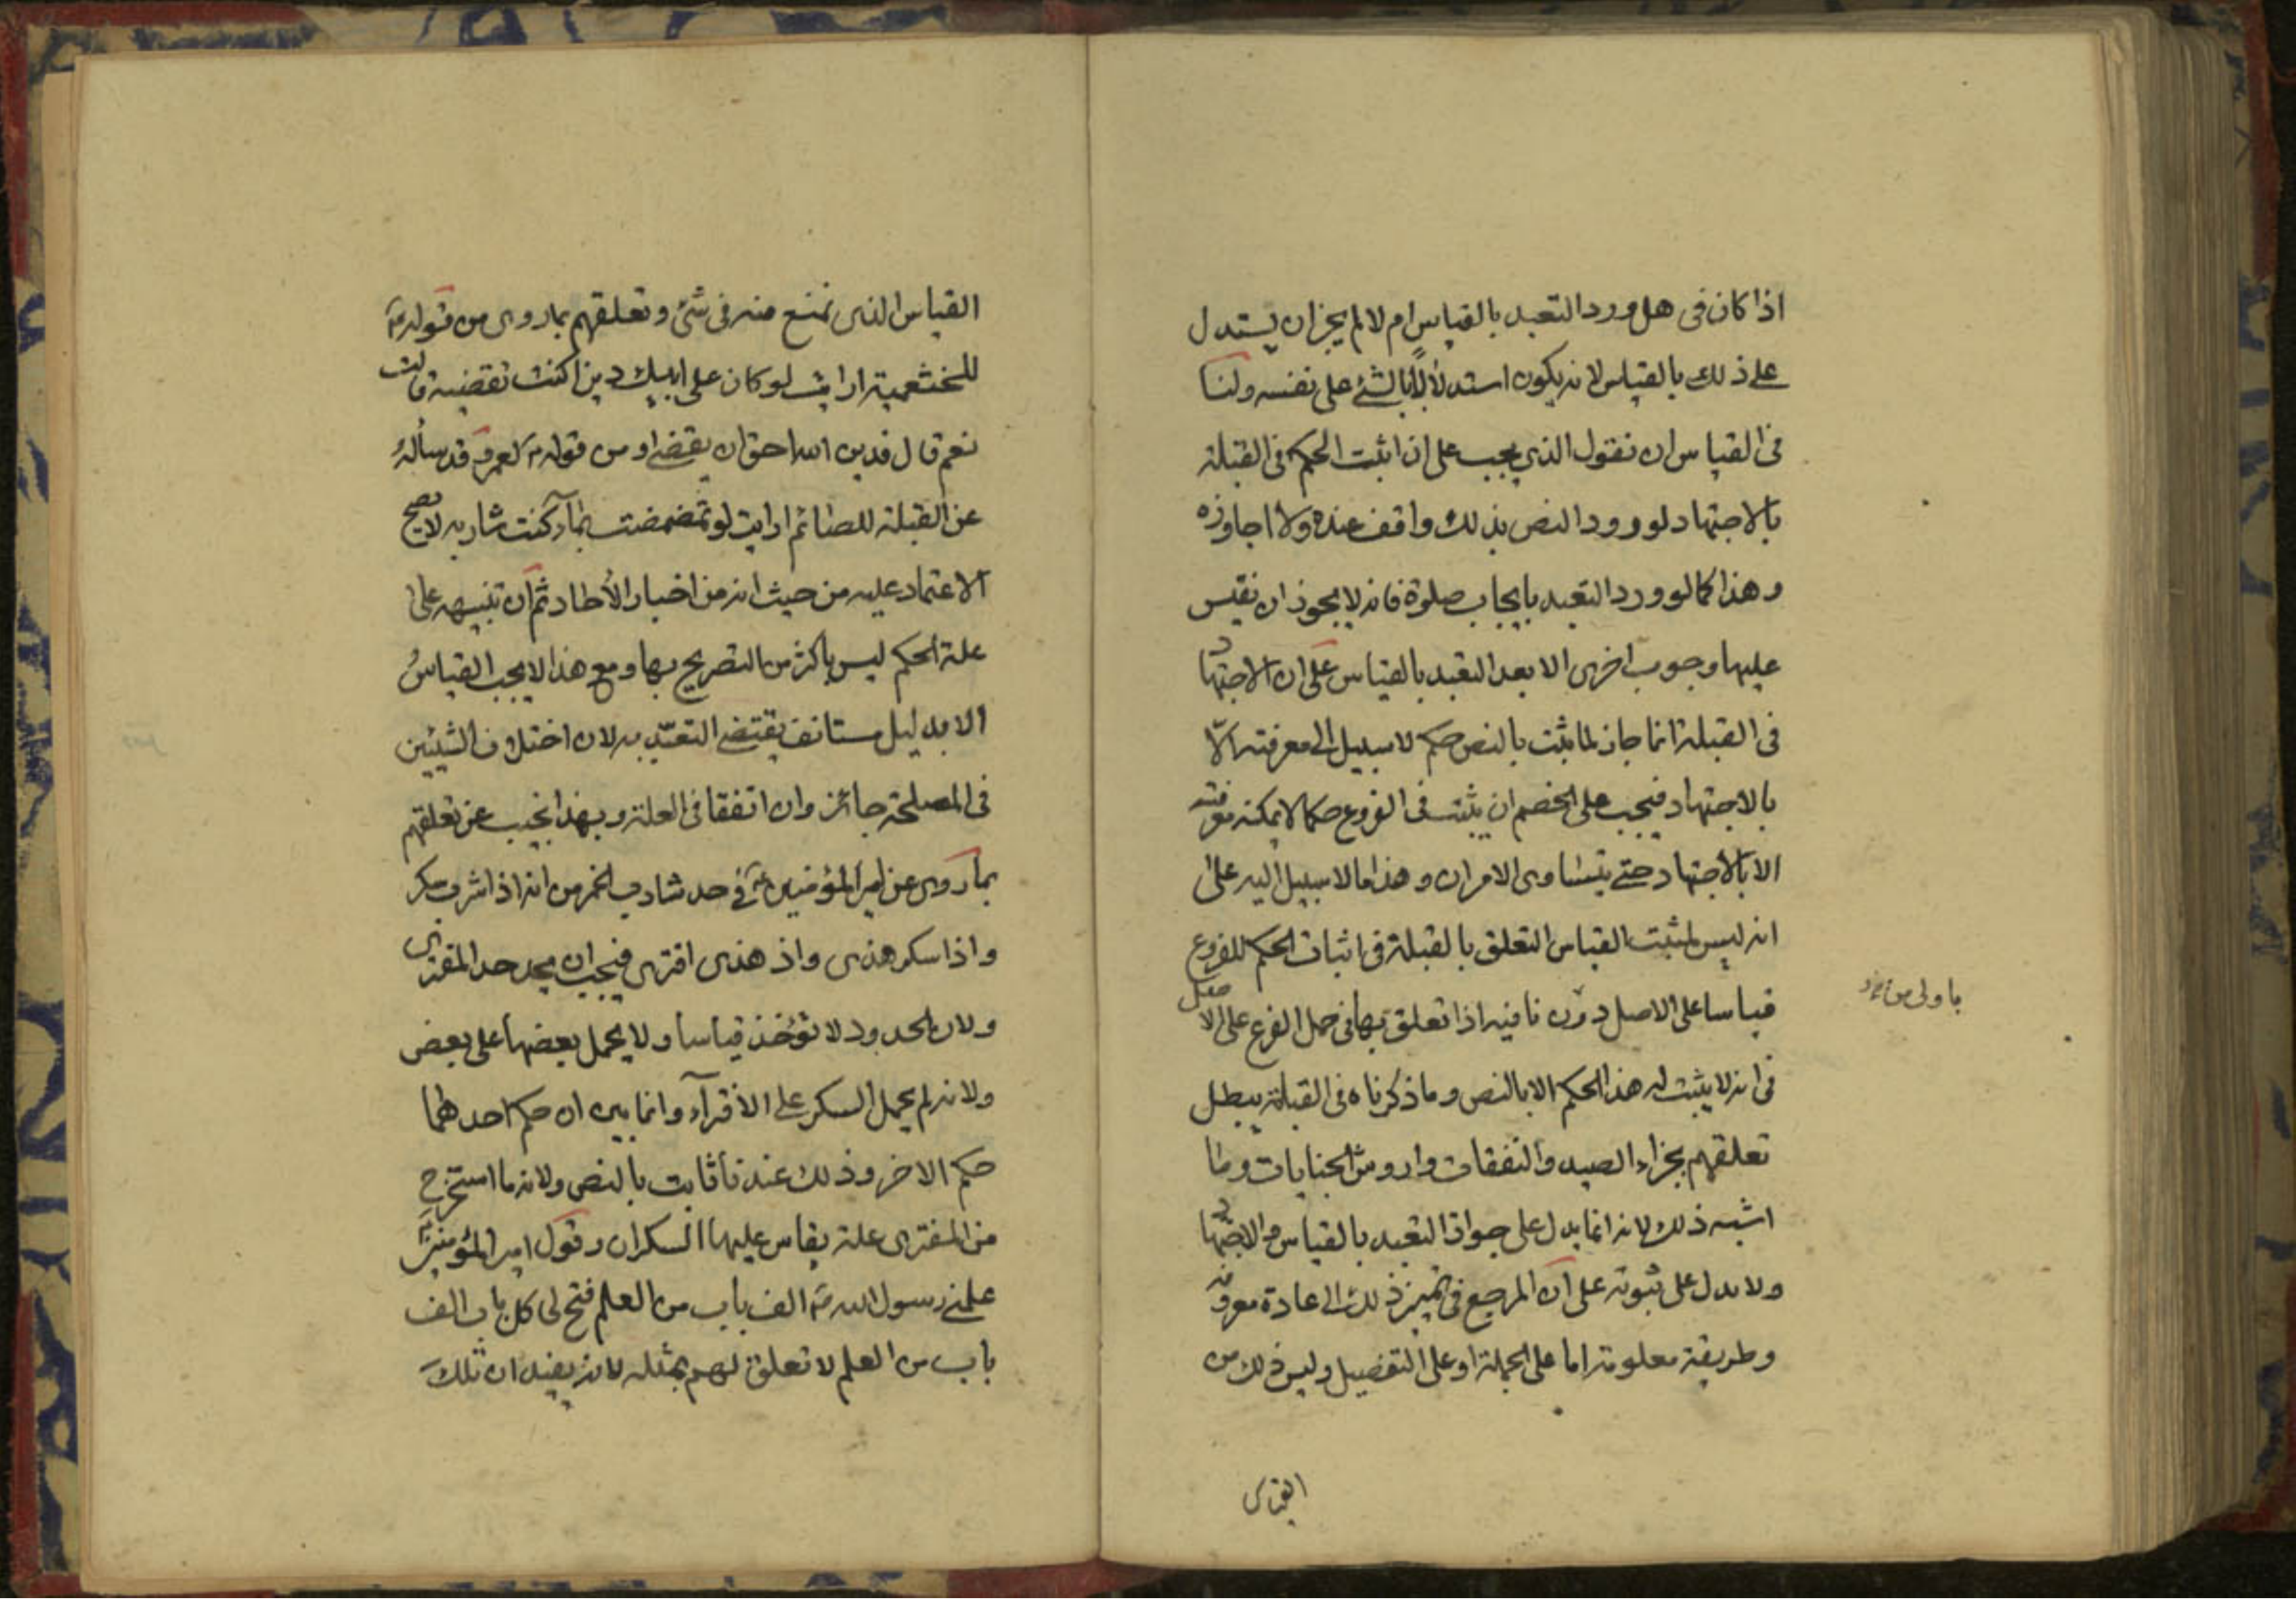 اذا كان في هل ورد التعبد بالقياس ام لا لم يجز ان يستدل
على ذلك بالقياس لانه يكون استدلالاً بالشئ على نفسه ولنا
في القياس ان نقول الذي يجب على ان اثبت الحكم في القبلة
بالاجتهاد لو ورد النص بذلك واقف عنده ولا اجاوزه
وهذا كما لو ورد التعبد بايجاب صلوة فانه لا يجوز ان نقيس
عليها وجوب اخرى الا بعد التعبد بالقياس على ان الاجتهاد
في القبلة انما جاز لما ثبت بالنص حكم لا سبيل الى معرفته الّا
بالاجتهاد فيجب على الخصم ان يثبت في الفروع حكما لا يمكنه معرفته
الا بالاجتهاد حتى يتساوى الامران وهذا ما لا سبيل اليه على
انه ليس لمثبت القياس التعلق بالقبلة في اثبات الحكم للفروع
قياسا على الاصل دون نافيه اذا تعلق بها في حمل الفرع على الاصل
باولى من
في انه لا يثبت له هذا الحكم الا بالنص وما ذكرناه في القبلة يبطل
تعلقهم بجزاء الصيد والنفقات واروش الجنايات وما
اشبه ذلك لانه انما يدل على جواز التعبد بالقياس والاجتهاد
ولا يدل على ثبوته على ان المرجع في تميز ذلك الى عادة معروفة
وطريقة معلومة اما على الجملة او على التفصيل وليس ذلك من
القياس
القياس الذى نمنع منه في شئ وتعلقهم بما روى من قوله ص
للخثعمية ارايت لو كان على ابيك دين اكنت تقضينه قالت
نعم قال فدين الله احق ان يقضى او من قوله ص لعمر وقد سأله
عن القبلة للصائم ارايت لو تمضمضت بماء اكنت شاربه لا يصح
الاعتماد عليه من حيث انه من اخبار الأحاد ثم ان تنبيهه على
علة الحكم ليس باكثر من التصريح بها ومع هذا لا يجب القياس
الا بدليل مستانف يقتضى التعبّد به لان اختلاف الشيئين
في المصلحة جائز وان اتفقا في العلة وبهذا نجيب عن تعلقهم
بما روى عن امير المؤمنين ع في حد شارب الخمر من انه اذا شرب سكر
واذا سكر هذى واذ هذى افترى فيجب ان يحد حد المفترى
ولان الحدود لا تؤخذ قياسا ولا يحمل بعضها على بعض
ولانه لم يحمل السكر على الأفترآء وانما بين ان حكم احدهما
حكم الاخر وذلك عندنا ثابت بالنص ولانه ما استخرج
من المفترى علة يقاس عليها السكران وقول امير المؤمنين ع
علمنى رسول الله ص الف باب من العلم فتح لى كل باب الف
باب من العلم لا تعلق لهم بمثله لانه يفيد ان تلك